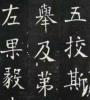 五挍斯
舉及第
左果毅